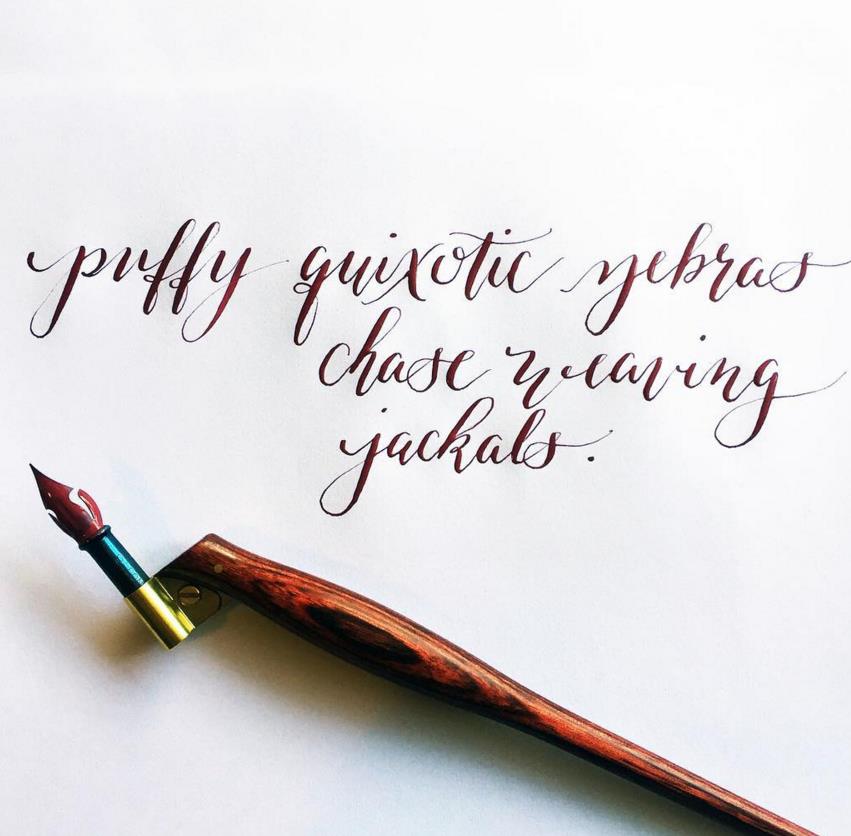 puffy quixotic zebras
chase weaving
jackals.